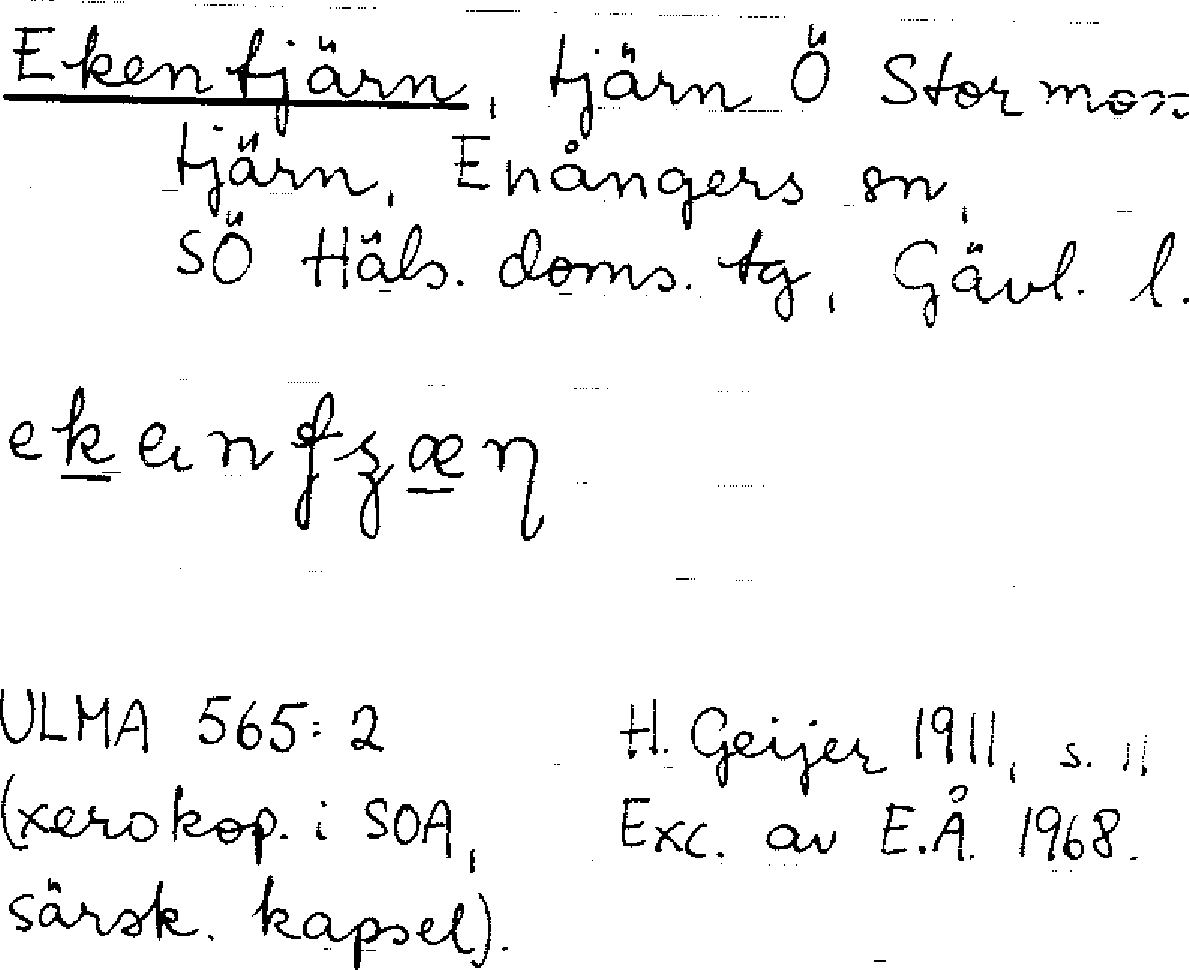 Ekentjärn, tjärn Ö Stormon
tjärn, Enångers sn,
SÖ Häls. doms. tg, Gävl. l.
ULMA 565:2
(xerokop. i SOA,
särsk. kapsel).
H. Geijer 1911, s. 11
Exc. av E.Å. 1968.